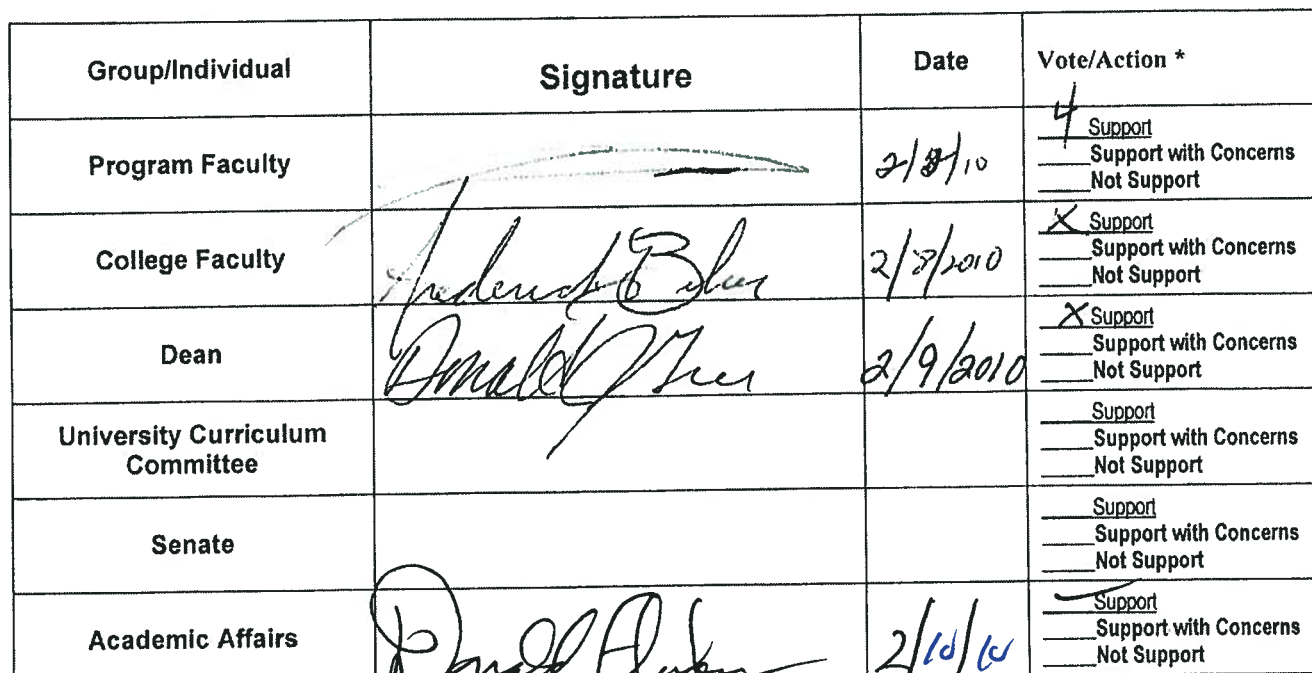 Group/Individual Signature Date Vote/Action *
Program Faculty 2/8/10 4 Support
____Support with Concerns
____Not Support
College Faculty 2/8/2010 X Support
____Support with Concerns
____Not Support
Dean Donald 2/9/2010 X Support
____Support with Concerns
____Not Support
University Curriculum
Committee
____Support
____Support with Concerns
____Not Support
Senate
____Support
____Support with Concerns
____Not Support
Academic Affairs 2/10/10 ✓ Support
____Support with Concerns
____Not Support